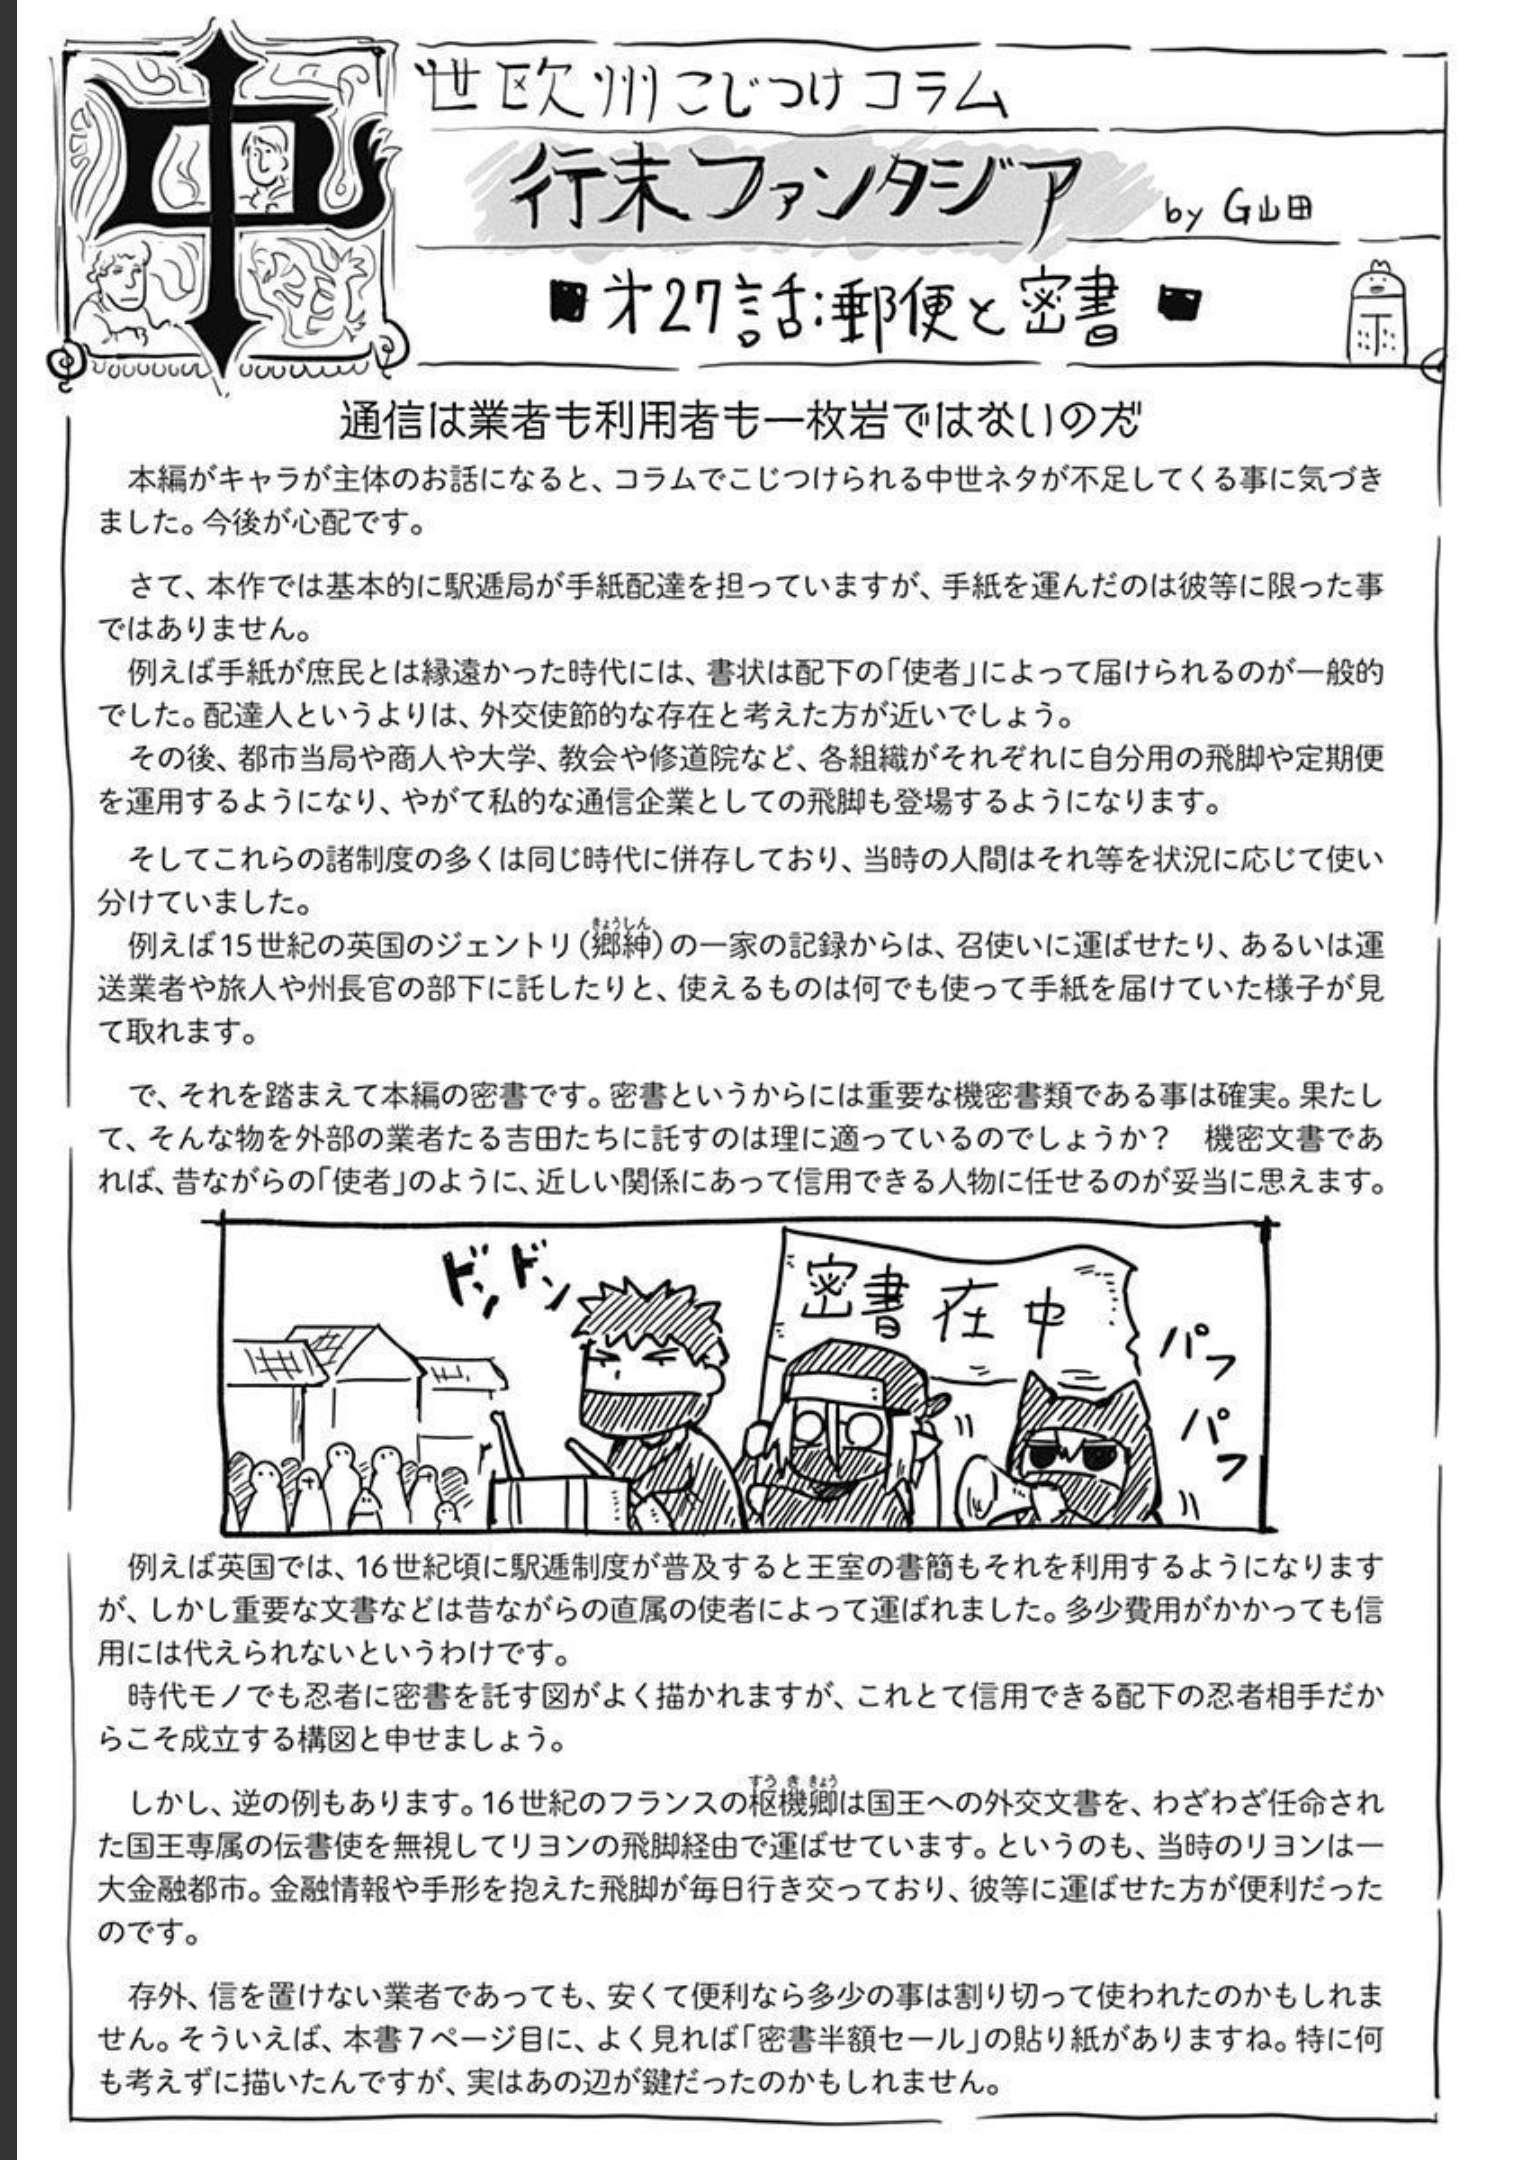 中世欧州こじつけコラム
行末ファンタジア by G山田
■才27話:郵便と密書■
通信は業者も利用者も一枚岩ではないのだ
本編がキャラが主体のお話になると、コラムでこじつけられる中世ネタが不足してくる事に気づき
ました。今後が心配です。
さて、本作では基本的に駅逓局が手紙配達を担っていますが、手紙を運んだのは彼等に限った事
ではありません。
例えば手紙が庶民とは縁遠かった時代には、書状は配下の「使者」によって届けられるのが一般的
でした。配達人というよりは、外交使節的な存在と考えた方が近いでしょう。
その後、都市当局や商人や大学、教会や修道院など、各組織がそれぞれに自分用の飛脚や定期便
を運用するようになり、やがて私的な通信企業としての飛脚も登場するようになります。
そしてこれらの諸制度の多くは同じ時代に併存しており、当時の人間はそれ等を状況に応じて使い
分けていました。
きょうしん
例えば15世紀の英国のジェントリ(郷紳)の一家の記録からは、召使いに運ばせたり、あるいは運
送業者や旅人や州長官の部下に託したりと、使えるものは何でも使って手紙を届けていた様子が見
て取れます。
で、それを踏まえて本編の密書です。密書というからには重要な機密書類である事は確実。果たし
て、そんな物を外部の業者たる吉田たちに託すのは理に適っているのでしょうか? 機密文書であ
れば、昔ながらの「使者」のように、近しい関係にあって信用できる人物に任せるのが妥当に思えます。
ドンドン
密書在中
パフ
パフ
例えば英国では、16世紀頃に駅逓制度が普及すると王室の書簡もそれを利用するようになります
が、しかし重要な文書などは昔ながらの直属の使者によって運ばれました。多少費用がかかっても信
用には代えられないというわけです。
時代モノでも忍者に密書を託す図がよく描かれますが、これとて信用できる配下の忍者相手だか
らこそ成立する構図と申せましょう。
すうききょう
しかし、逆の例もあります。16世紀のフランスの枢機卿は国王への外交文書を、わざわざ任命され
た国王専属の伝書使を無視してリヨンの飛脚経由で運ばせています。というのも、当時のリヨンは一
大金融都市。金融情報や手形を抱えた飛脚が毎日行き交っており、彼等に運ばせた方が便利だった
のです。
存外、信を置けない業者であっても、安くて便利なら多少の事は割り切って使われたのかもしれま
せん。そういえば、本書7ページ目に、よく見れば「密書半額セール」の貼り紙がありますね。特に何
も考えずに描いたんですが、実はあの辺が鍵だったのかもしれません。